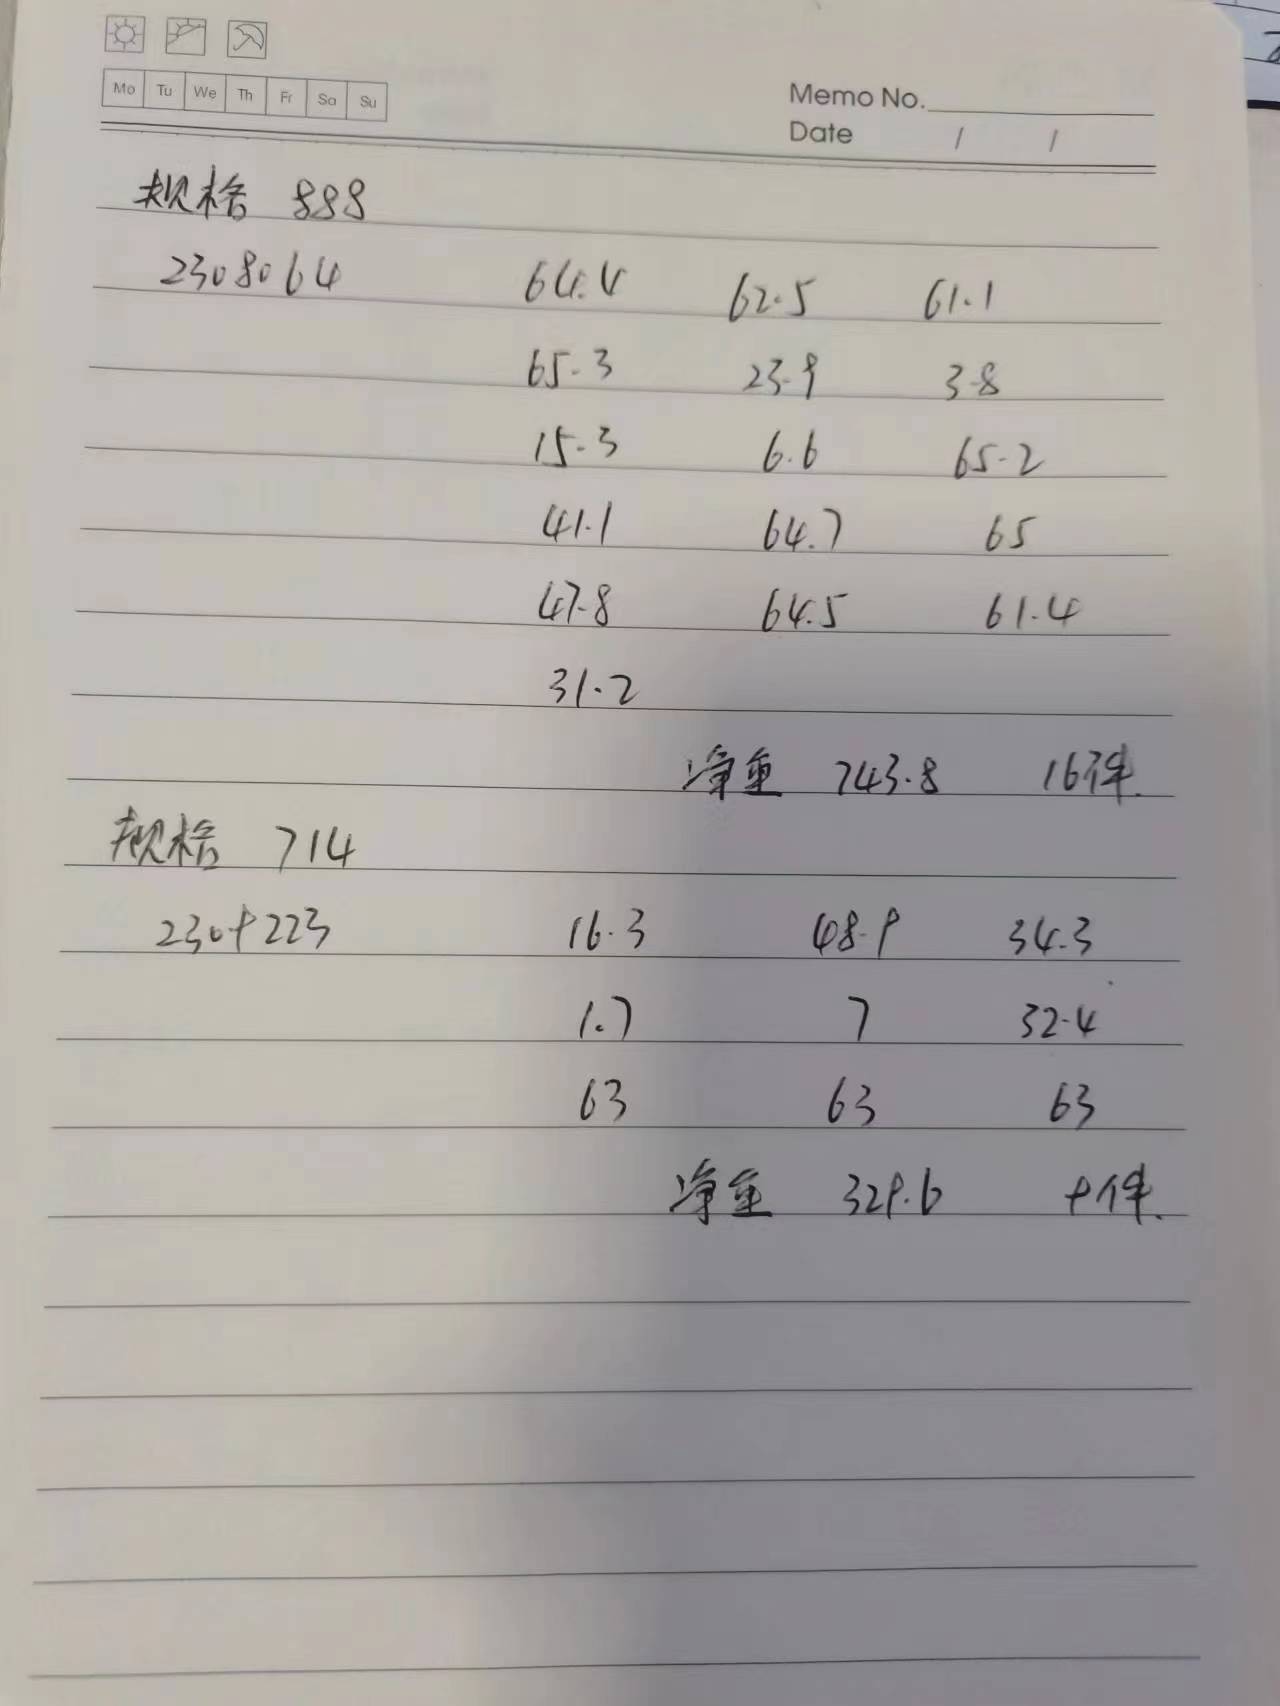 Mo Tu We Th Fr Sa Su
Memo No.
Date / /
规格 888
2308064 64.4 62.5 61.1
65.3 23.9 3.8
15.3 6.6 65.2
41.1 64.7 65
47.8 64.5 61.4
31.2
净重 743.8 16件.
规格 714
2309223 16.3 48.9 34.3
1.7 7 32.4
63 63 63
净重 329.6 9件.